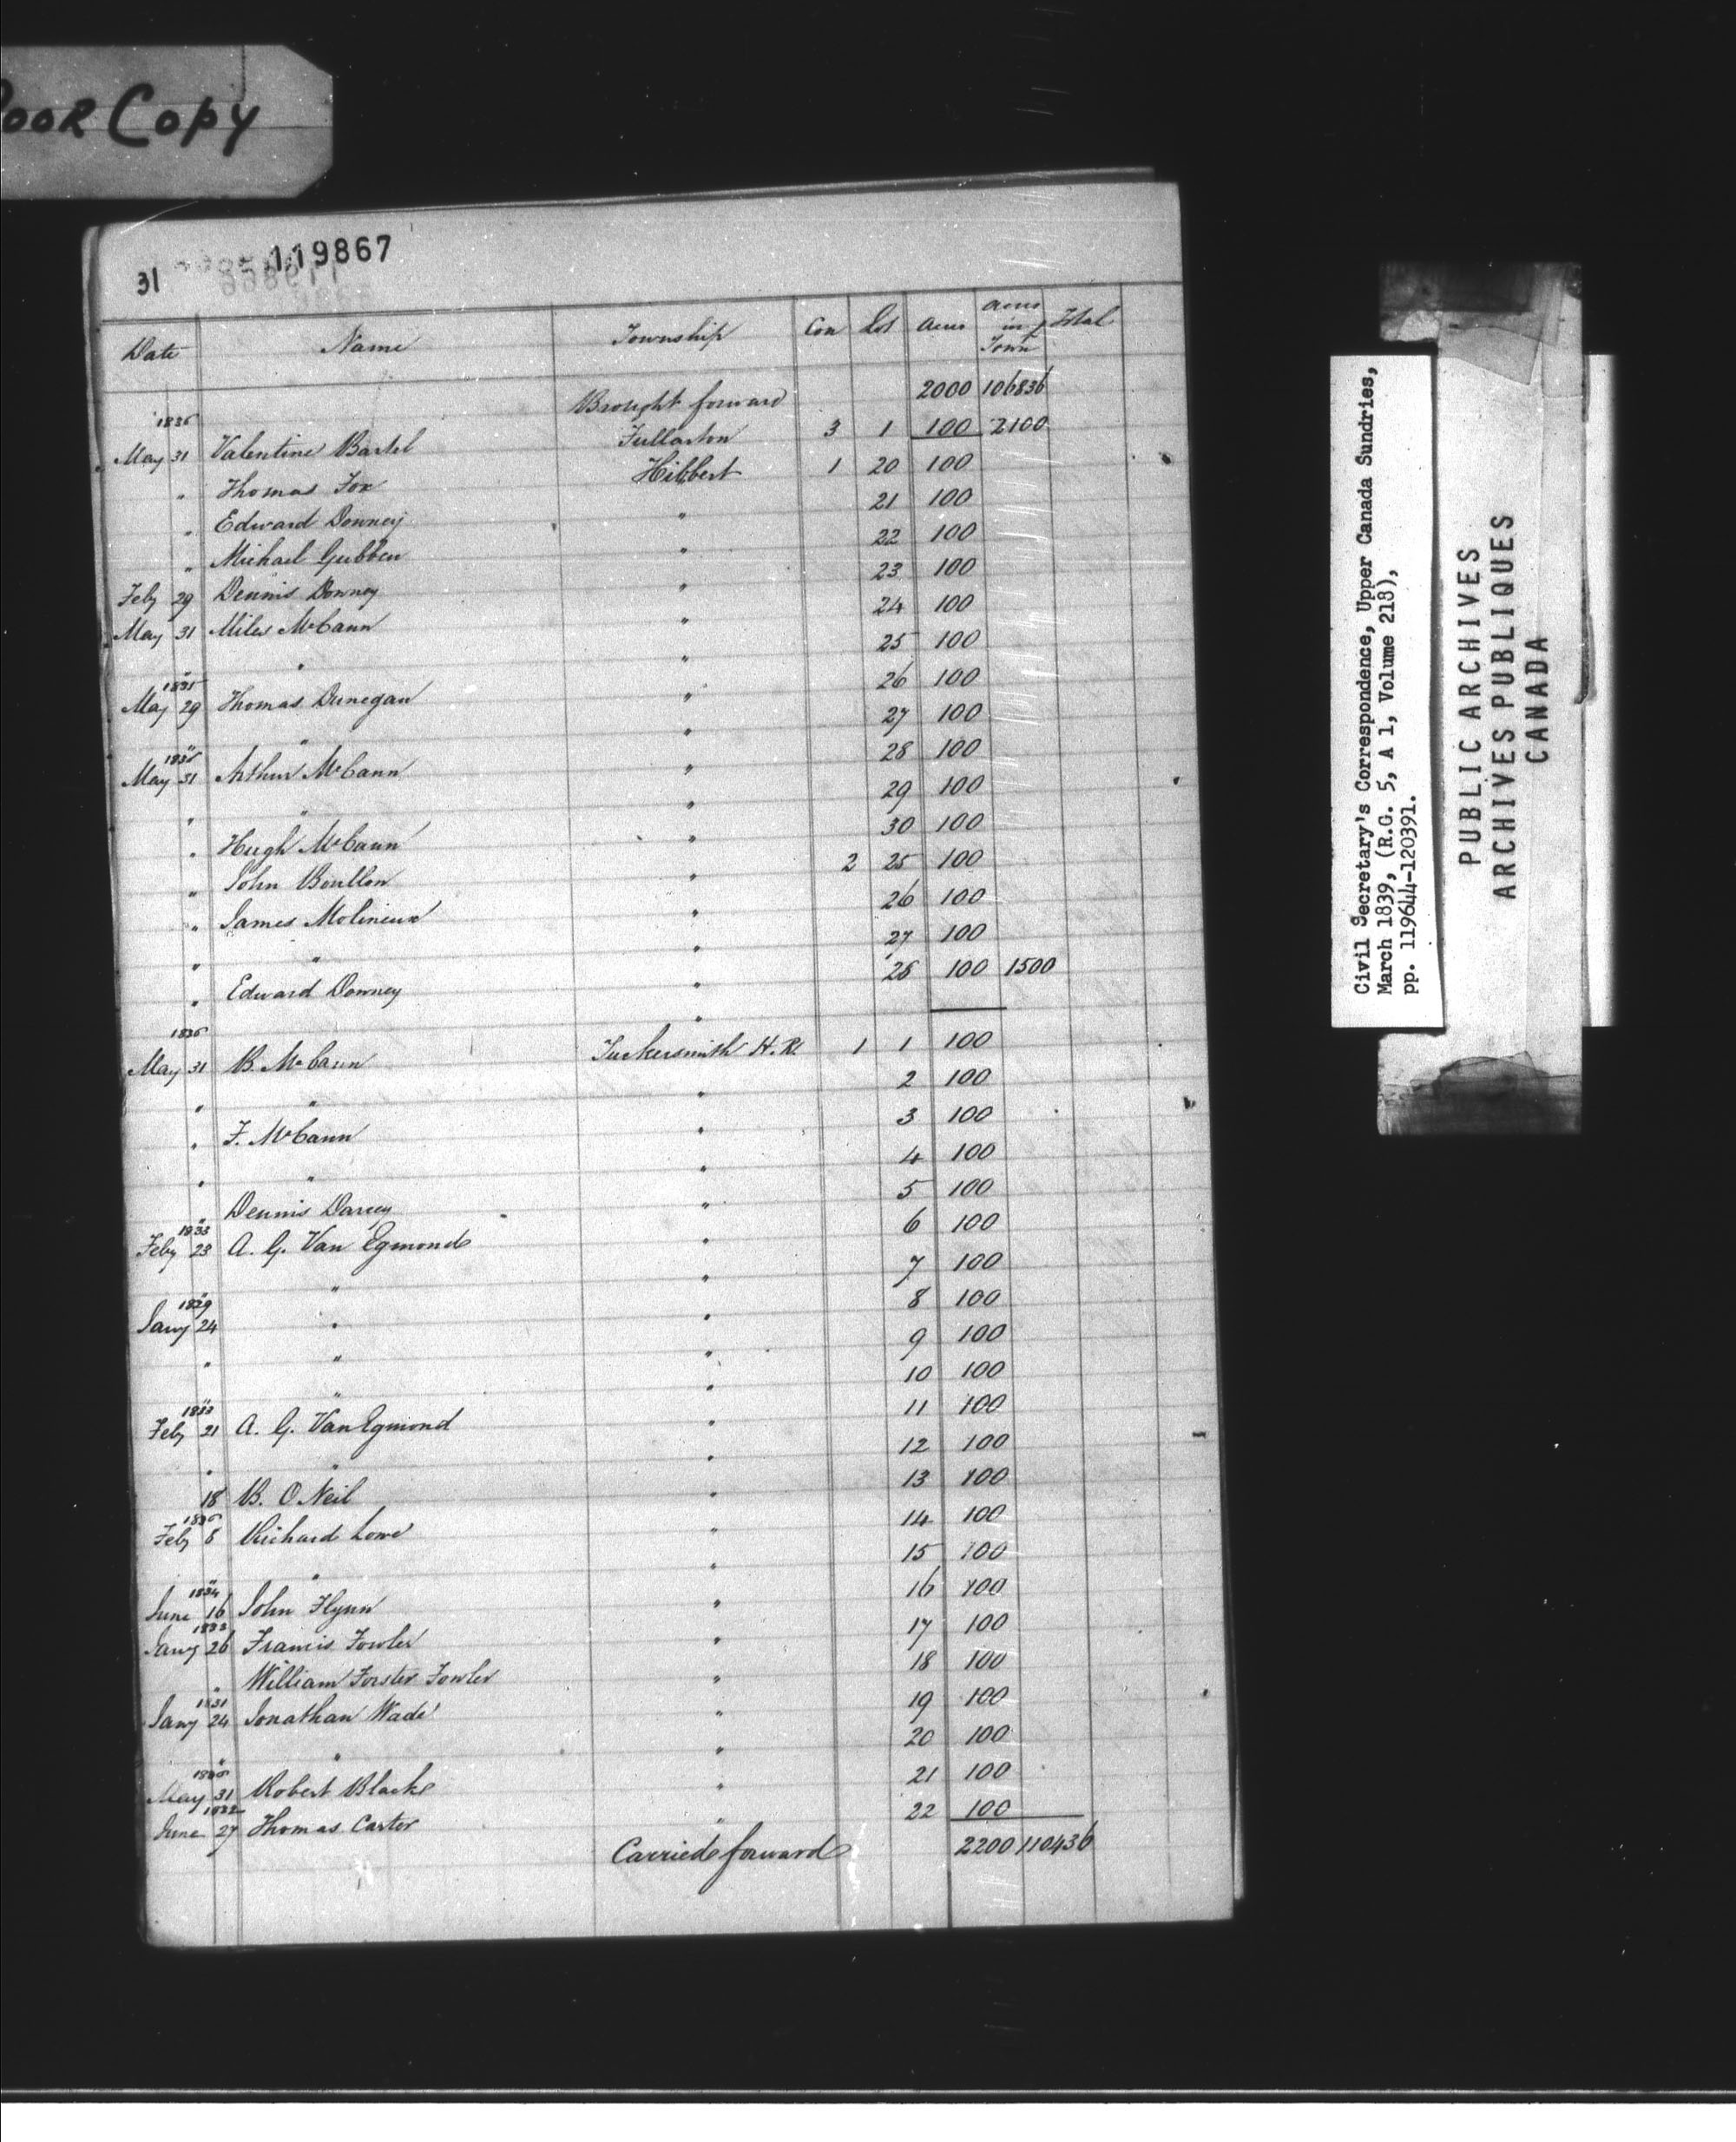 OOR COPY
31 119867
Date Name Township Con Lot Acres Acres in Town Total
Brought forward 2000 106836
1836
May 31 Valentine Bartel Fullarton 3 1 100 2100
" Thomas Fox Hibbert 1 20 100
" Edward Downey " 21 100
" Michael Gubben " 22 100
Feby 29 Dennis Downey " 23 100
May 31 Miles McCann " 24 100
" " 25 100
1835
May 29 Thomas Dunegan " 26 100
" " " 27 100
May 31 Arthur McCann " 28 100
" " " 29 100
" Hugh McCann " 30 100
" John Boullon " 2 25 100
" James Molineux " 26 100
" " " 27 100
" Edward Downey " 28 100 1500
1836
May 31 B. McCann Tuckersmith H. R. 1 1 100
" " " 2 100
" F. McCann " 3 100
" " " 4 100
" Dennis Darcey " 5 100
1833
Feby 23 A. G. Van Egmond " 6 100
" " " 7 100
1829
Jany 24 " " 8 100
" " " 9 100
" " " 10 100
1833
Feby 21 A. G. Van Egmond " 11 100
" " " 12 100
18 B. O Neil " 13 100
1836
Feby 8 Richard Lowe " 14 100
" " " 15 100
1834
June 16 John Flynn " 16 100
1833
Jany 26 Francis Fowler " 17 100
" William Forster Fowler " 18 100
1831
Jany 24 Jonathan Wade " 19 100
" " " 20 100
1836
May 31 Robert Blacke " 21 100
1832
June 27 Thomas Carter " 22 100
Carried forward 2200 110436
Civil Secretary's Correspondence, Upper Canada Sundries,
March 1839, (R.G. 5, A 1, Volume 218),
pp. 119644-120391.
PUBLIC ARCHIVES
ARCHIVES PUBLIQUES
CANADA